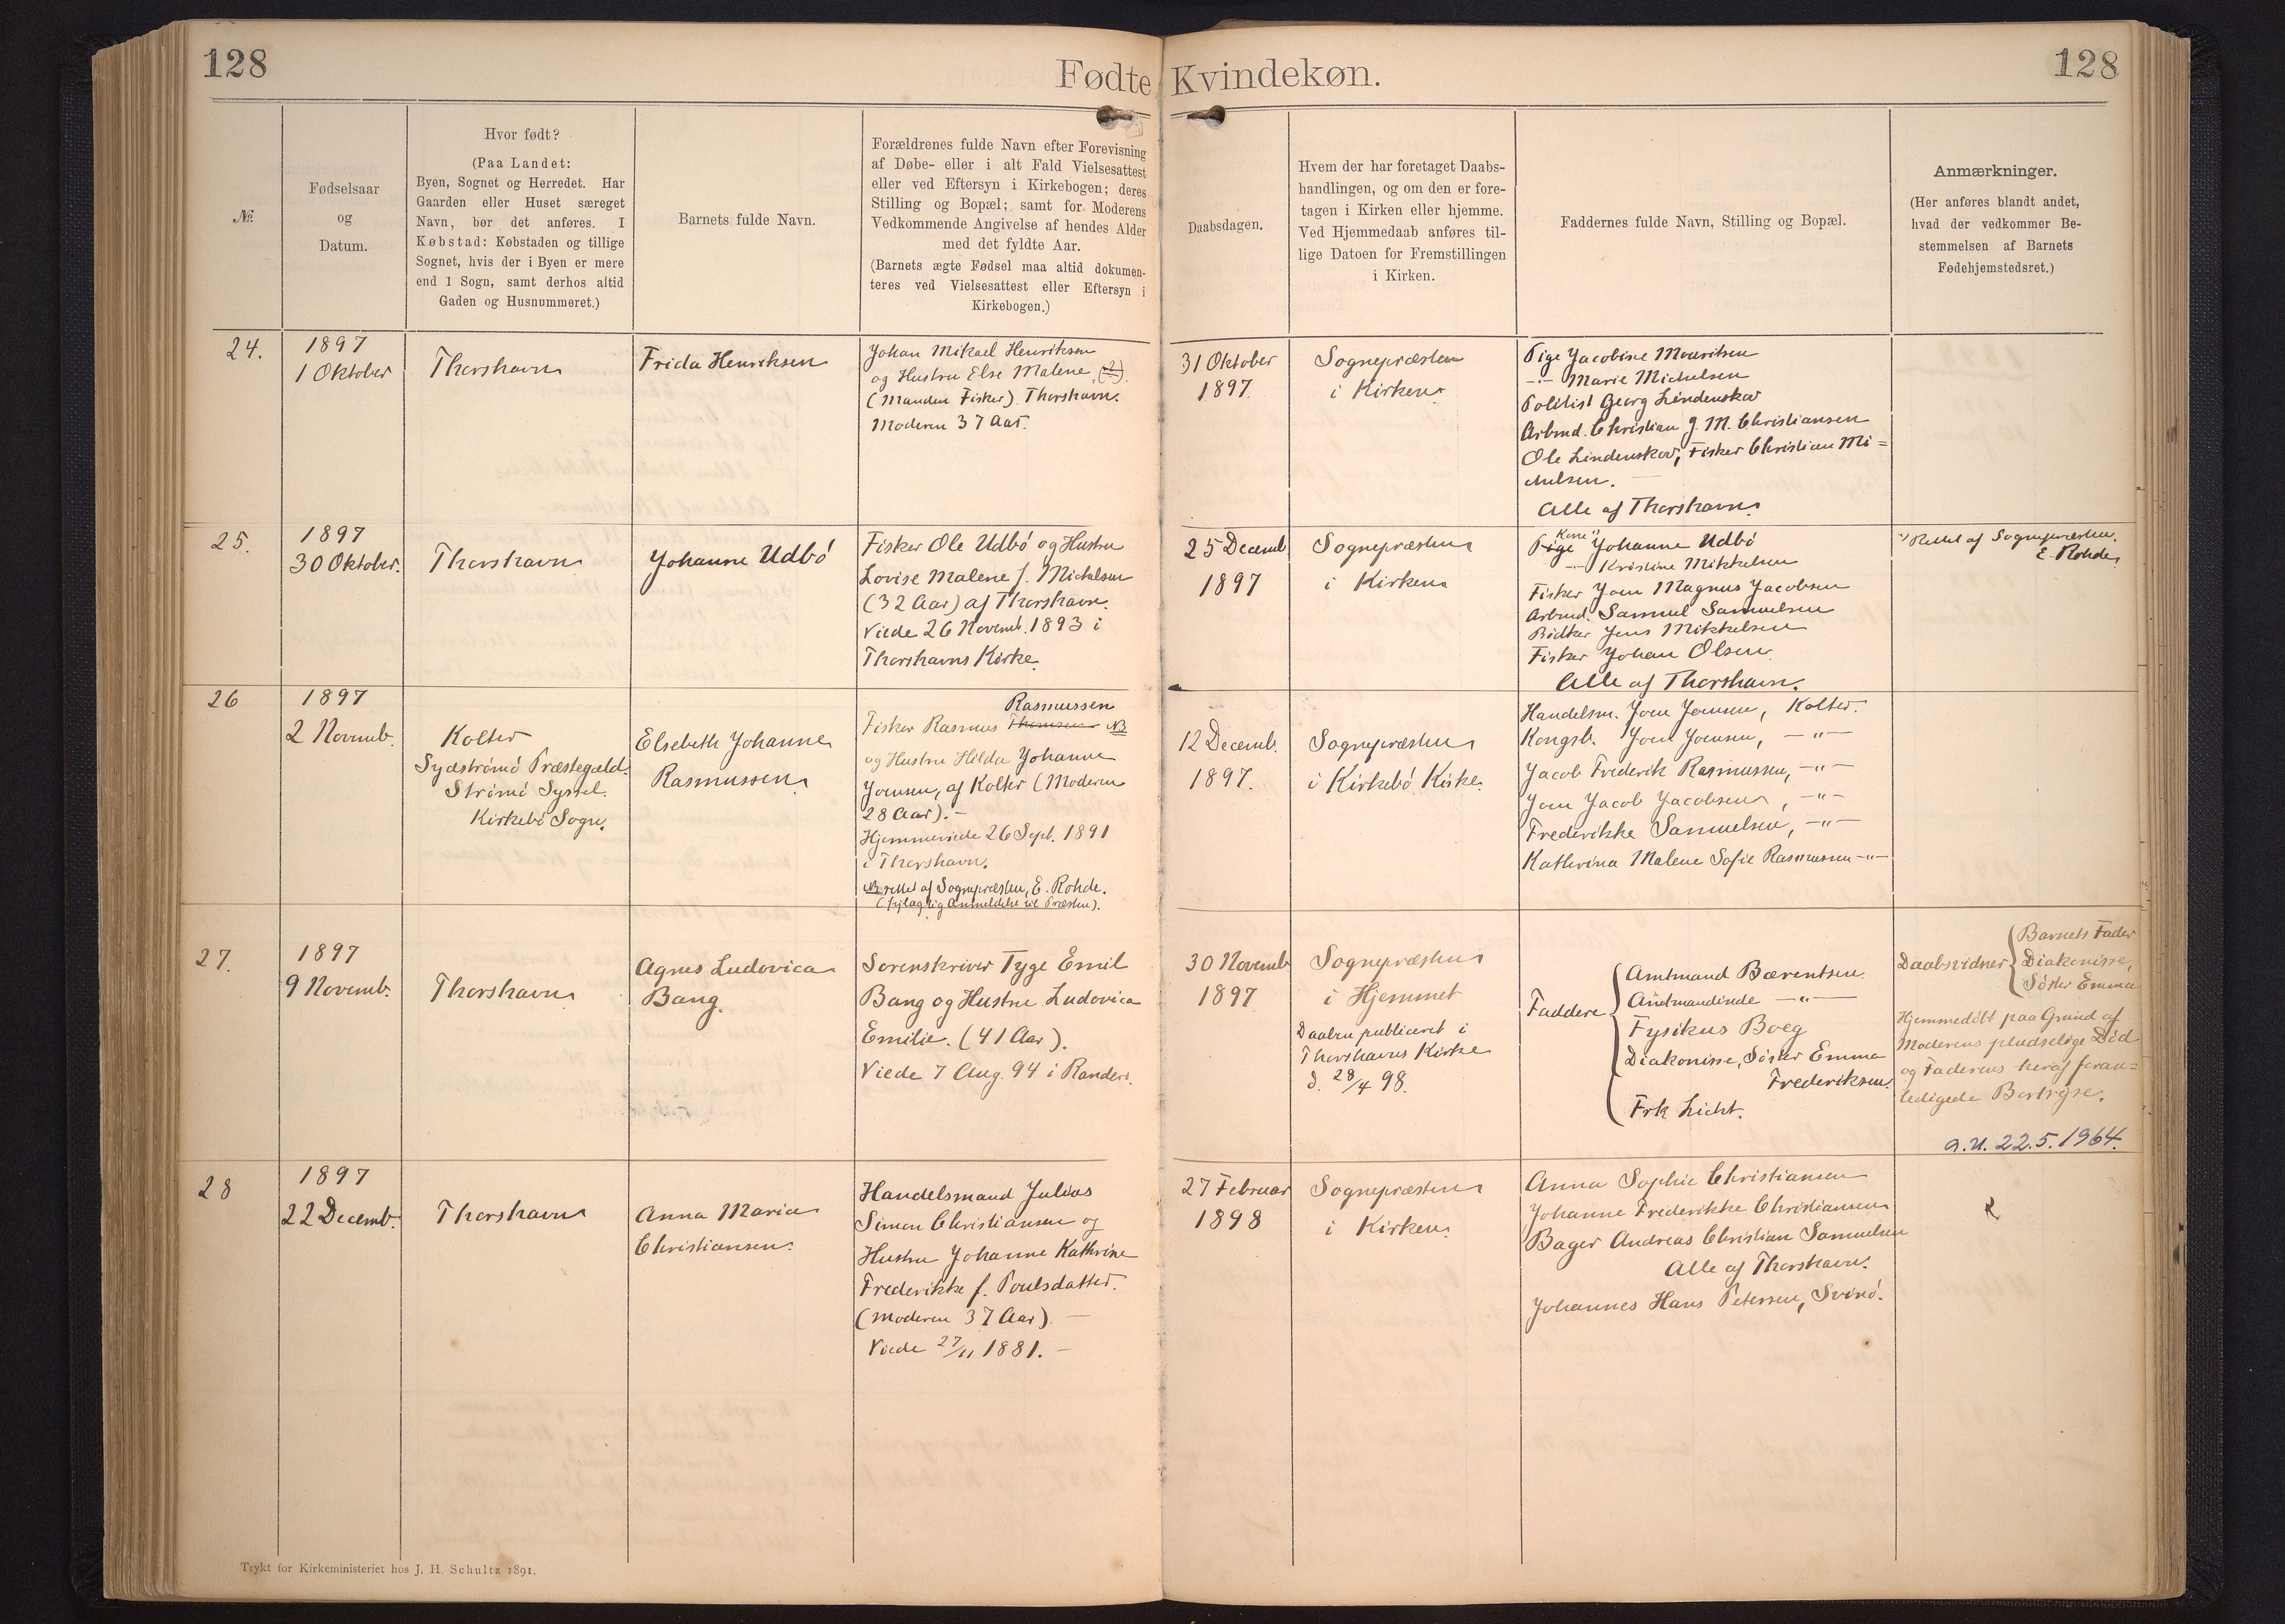 128
Fødte Kvindekøn.
128
№.
Fødselsaar
og
Datum.
Hvor født?
(Paa Landet:
Byen, Sognet og Herredet. Har
Gaarden eller Huset særeget
Navn, bør det anføres. I
Købstad: Købstaden og tillige
Sognet, hvis der i Byen er mere
end 1 Sogn, samt derhos altid
Gaden og Husnummeret.)
Barnets fulde Navn.
Forældrenes fulde Navn efter Forevisning
af Døbe- eller i alt Fald Vielsesattest
eller ved Eftersyn i Kirkebogen; deres
Stilling og Bopæl; samt for Moderens
Vedkommende Angivelse af hendes Alder
med det fyldte Aar.
(Barnets ægte Fødsel maa altid dokumen-
teres ved Vielsesattest eller Eftersyn i
Kirkebogen.)
Daabsdagen.
Hvem der har foretaget Daabs-
handlingen, og om den er fore-
tagen i Kirken eller hjemme.
Ved Hjemmedaab anføres til-
lige Datoen for Fremstillingen
i Kirken.
Faddernes fulde Navn, Stilling og Bopæl.
Anmærkninger.
(Her anføres blandt andet,
hvad der vedkommer Be-
stemmelsen af Barnets
Fødehjemstedsret.)
24.
1897
1 Oktober
Thorshavn
Frida Henriksen
Johan Mikael Henriksen
og Hustru Else Malene
(Manden Fisker). Thorshavn.
Moderen 37 Aar.
31 Oktober
1897.
Sognepræsten
i Kirken
Pige Jacobine Mouritsen
-"- Marie Michelsen
Politist Georg Lindenskov
Arbmd. Christian J. M. Christiansen
Ole Lindenskov, Fisker Christian Mi=
chelsen.
Alle af Thorshavn.
25.
1897
30 Oktober.
Thorshavn
Johanne Udbö
Fisker Ole Udbö og Hustru
Lovise Malene f. Michelsen
(32 Aar) af Thorshavn.
Viede 26 Novemb. 1893 i
Thorshavns Kirke.
25 Decemb
1897
Sognepræsten
i Kirken
Kone
Pige Johanne Udbö
-"- Kristine Mikkelsen
Fisker Joen Magnus Jacobsen
Arbmd. Samuel Samuelsen
Bödker Jens Mikkelsen
Fisker Johan Olsen.
Alle af Thorshavn.
Rettet af Sognepræsten,
E. Rohde,
26
1897
2 Novemb.
Kolter
Syd­strömö Præstegæld.
Strömö Syssel.
Kirkebö Sogn.
Elsebeth Johanne
Rasmussen
Rasmussen
Fisker Rasmus Thomsen NB
og Hustru Hilda Johanne
Joensen, af Kolter (Moderen
28 Aar).-
Hjemmeviede 26 Sept. 1891
i Thorshavn.
NB rettet af Sognepræsten, E. Rohde.
(fejlagtig Anmeldelse til Præsten).
12 Decemb.
1897.
Sognepræsten
i Kirkebö Kirke.
Handelsm. Joen Joensen, Kolter.
Kongsb. Joen Joensen, -"-
Jacob Frederik Rasmussen, -"-
Joen Jacob Jacobsen, -"-
Frederikke Samuelsen, -"-
Kathrina Malene Sofie Rasmussen -"-
27.
1897
9 Novemb.
Thorshavn
Agnes Ludovica
Bang.
Sorenskriver Tyge Emil
Bang og Hustru Ludovica
Emilie. (41 Aar).
Viede 7 Aug. 94 i Randers.
30 Novemb
1897
Sognepræsten
i Hjemmet
Daaben publiceret i
Thorshavns Kirke
d. 28/4 98.
Faddere
Amtmand Bærentsen
Amtmandinde -"-
Fysikus Boeg
Diakonisse, Söster Emma
Frederiksen.
Frk Licht.
Daabsvidner
Barnets Fader
Diakonisse,
Söster Emma
Hjemmedöbt paa Grund af
Moderens pludselige Död
og Faderens heraf foran=
ledigede Bortrejse.
a.u. 22.5.1964.
28
1897
22 Decemb.
Thorshavn
Anna Maria
Christiansen.
Handelsmand Julius
Simon Christiansen og
Hustru Johanne Kathrine
Frederikke f. Poulsdatter.
(Moderen 37 Aar). -
Viede 27/11 1881. -
27 Februar
1898
Sognepræsten
i Kirken.
Anna Sophie Christiansen
Johanne Frederikke Christiansen
Bager Andreas Christian Samuelsen
Alle af Thorshavn.
Johannes Hans Petersen, Svinö.
Trykt for Kirkeministeriet hos J. H. Schultz 1891.